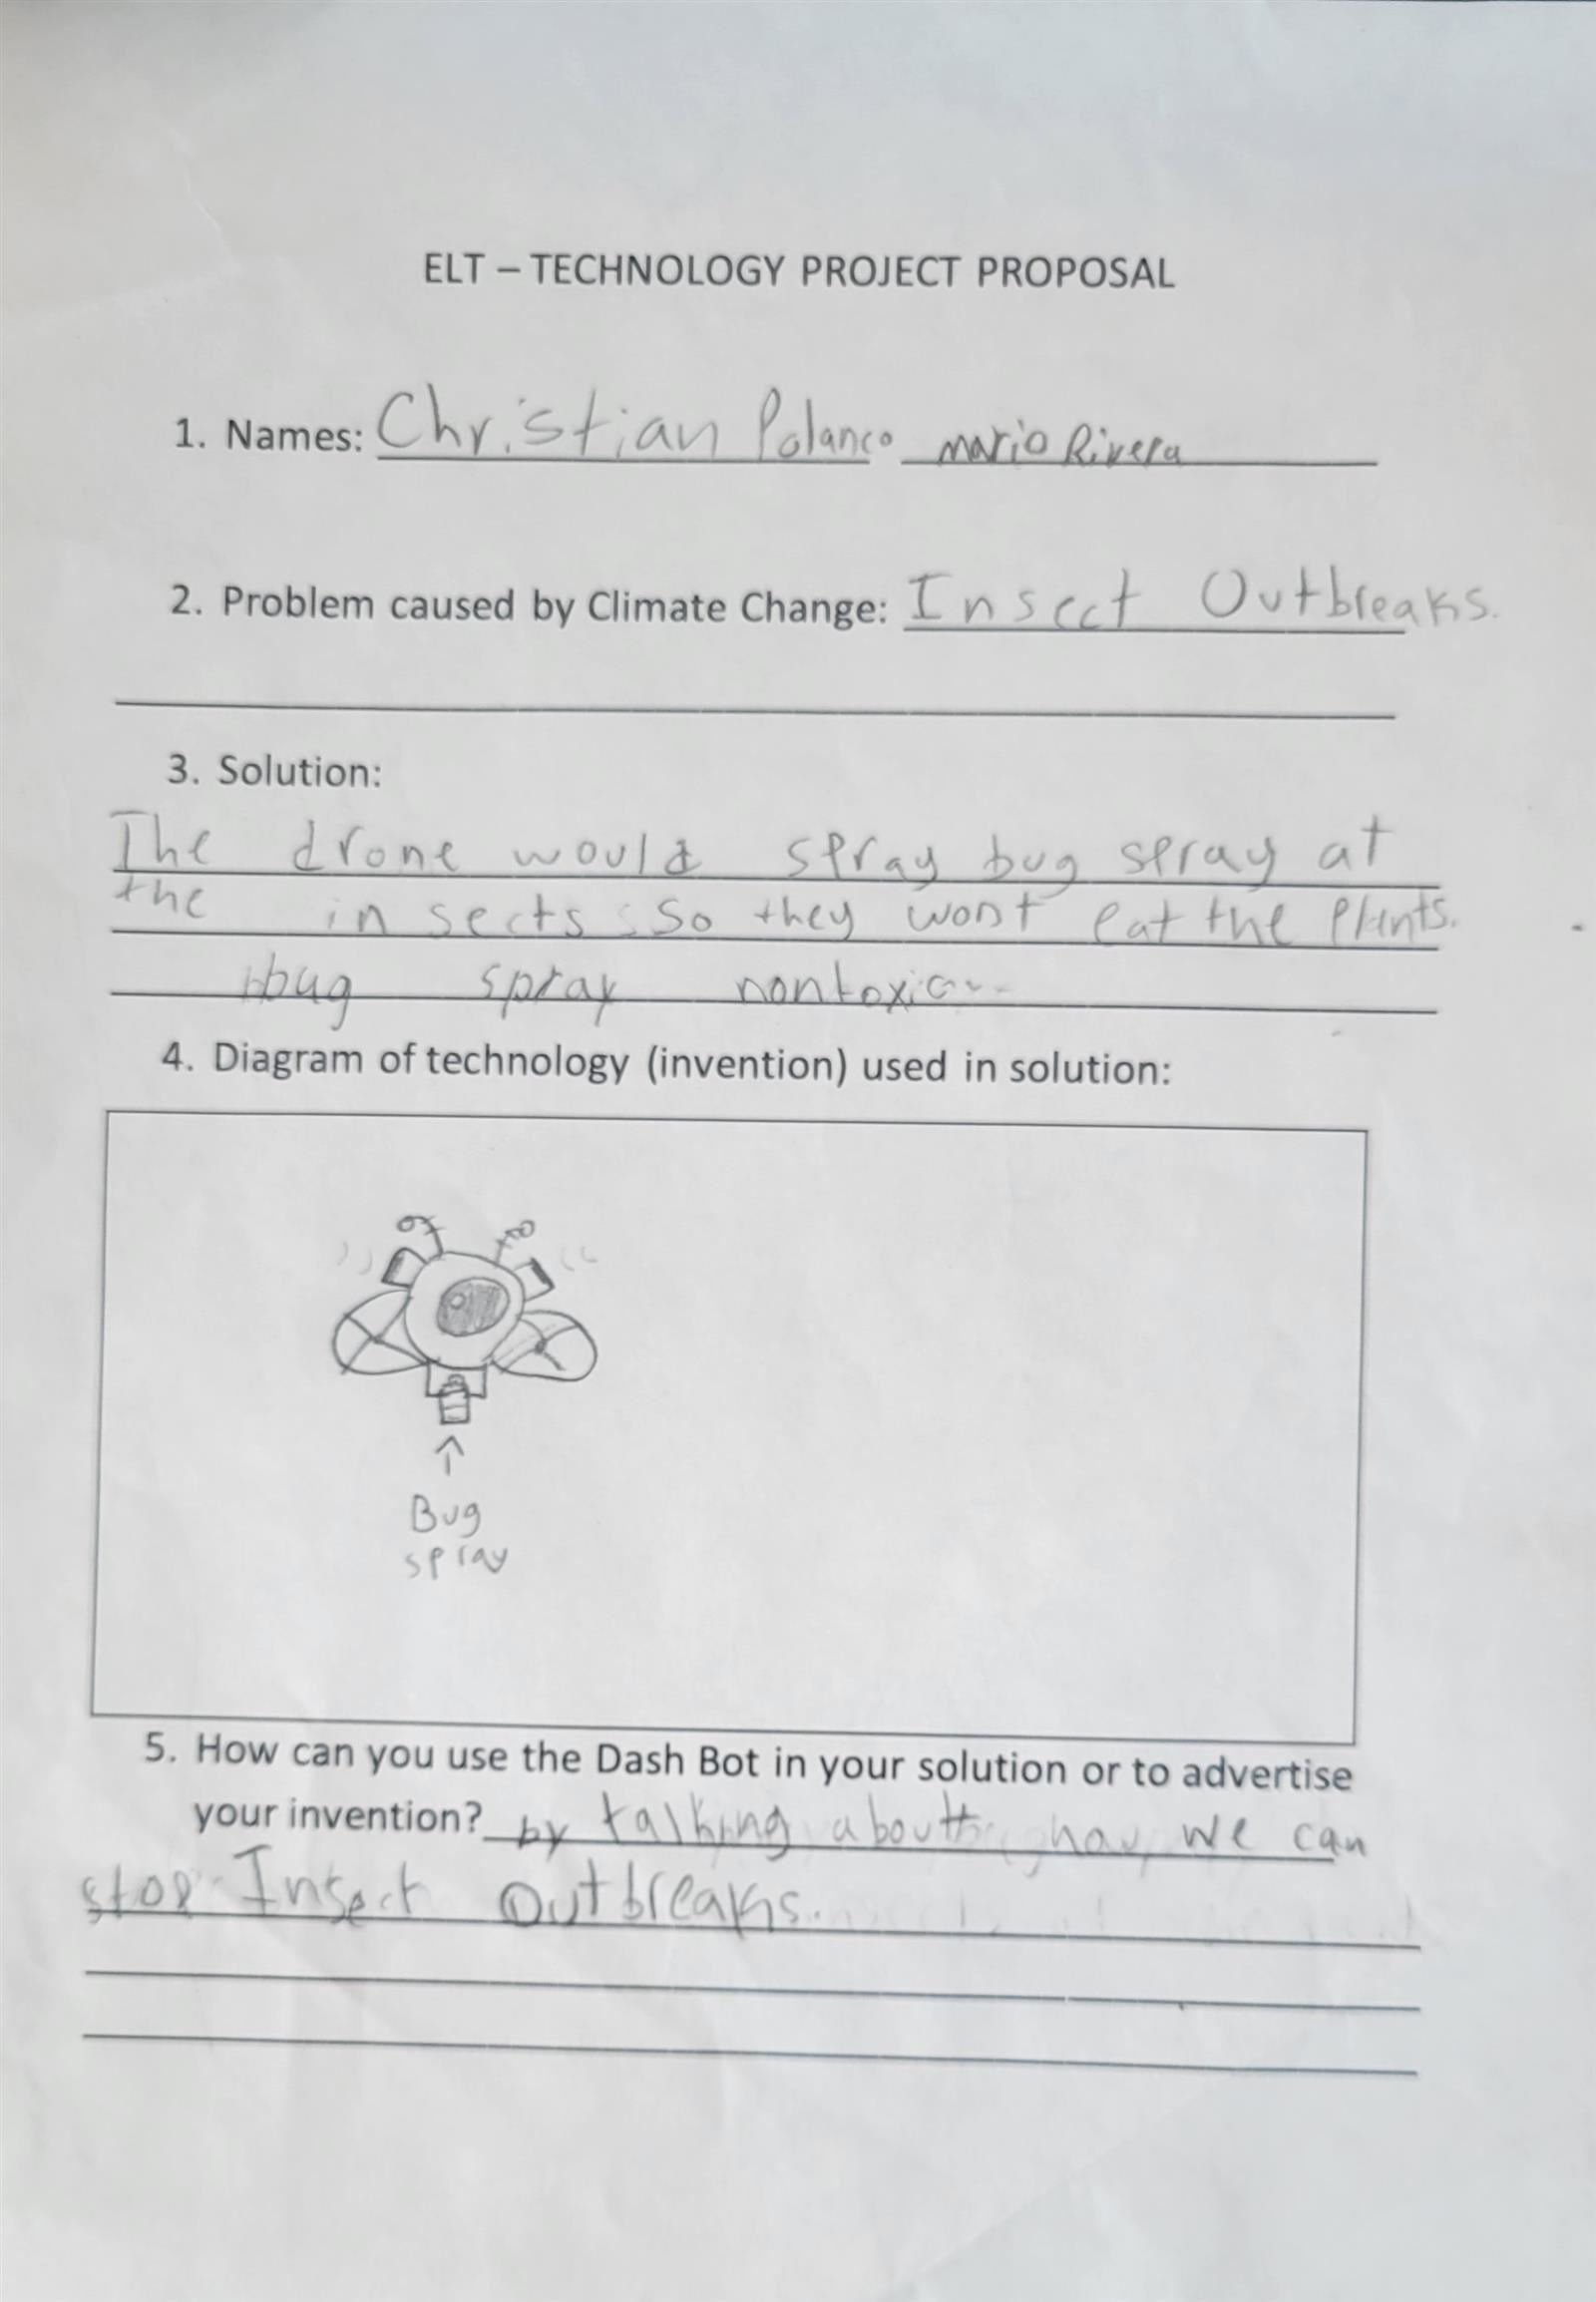 ELT – TECHNOLOGY PROJECT PROPOSAL
1. Names: Christian Polanco mario Rivera
2. Problem caused by Climate Change: Insect Outbreaks.
3. Solution:
The drone would spray bug spray at
the insects so they wont eat the Plants.
bug spray nontoxic
4. Diagram of technology (invention) used in solution:
Bug
spray
5. How can you use the Dash Bot in your solution or to advertise
your invention? by talking about we can
stop Insect Outbreaks.